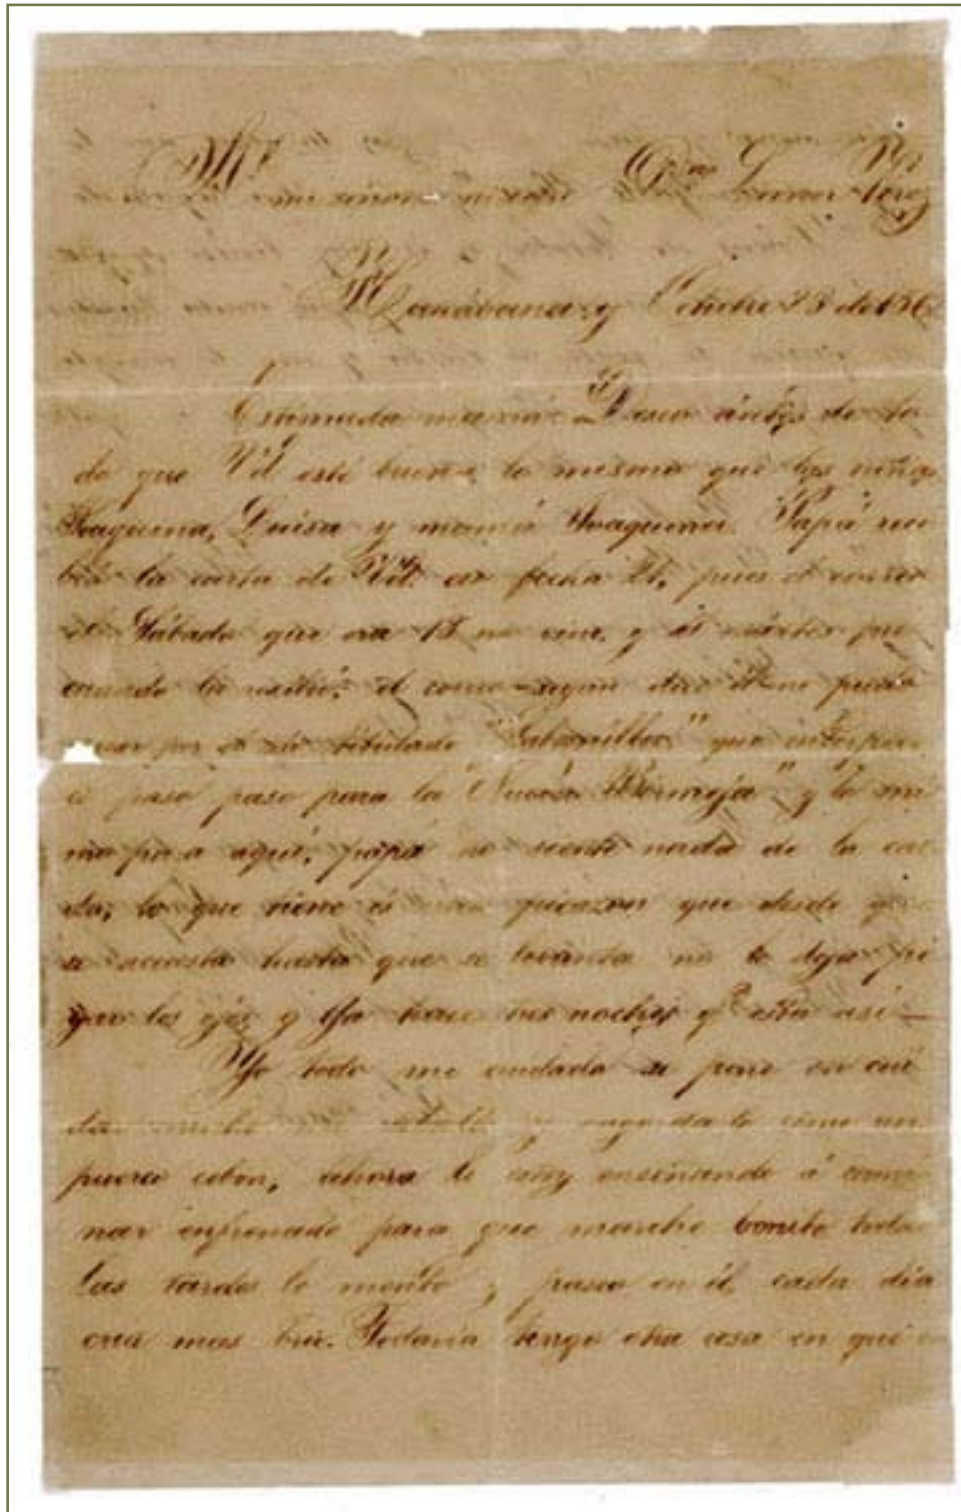 mi señora mamá Dña Leonor Perez
Hanábana y Octubre 23 de 1862
Estimada mamá: Deseo ántes de to
do que Vd esté buena, lo mismo que las niñas,
Joaquina, Luisa y mamá Joaquina. Papá reci
bió la carta de Vd. con fecha 21, pues el correo
del Sábado que era 18 no vino, y el mártes fue
cuando la recibió; el correo según dice él no pudo
pasar por el río titulado "Sabanilla" que
el paso para la "Nueva Bermeja" y lo mis
mo para aquí, papá no siente nada de la cai
da, lo que tiene es una picazon que desde que
se acuesta hasta que se levanta no le deja pe
gar los ojos, y ya hace tres noches q.e está así—
Yo todo mi cuidado se pone en cui
dar mucho mi caballo y engordarlo como un
puerco cebon, ahora lo estoy enseñando á cami
nar enfrenado para que marche bonito, todas
las tardes lo monto y paseo en él, cada dia
cria mas brio. Todavía tengo otra cosa en que